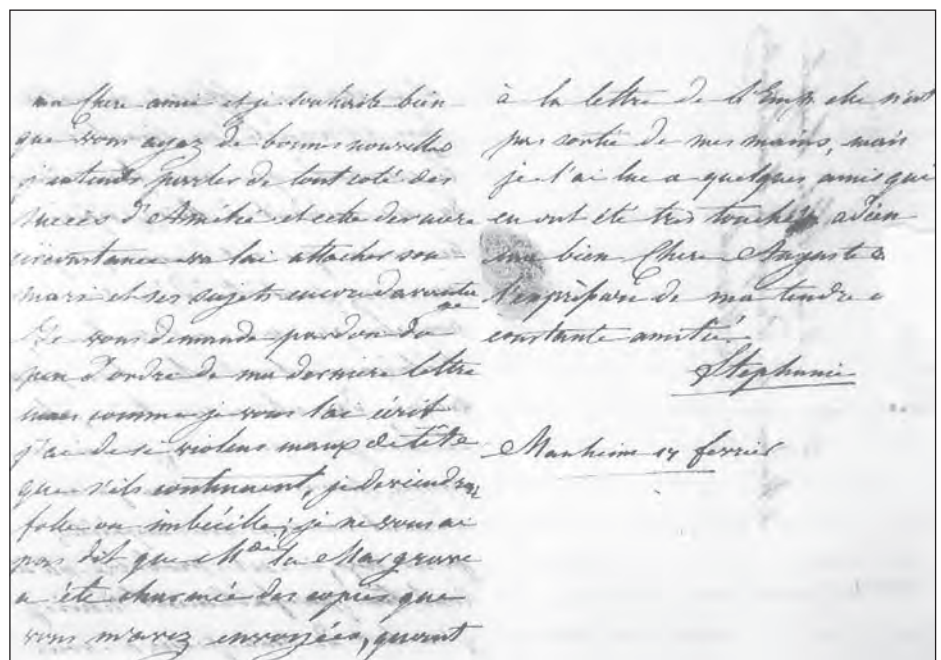 ma Chere amie et je souhaite bien
que vous ayez de bonnes nouvelles
j'entends parler de tout coté des
succès d'Amélie et cette derniere
circonstance va lui attacher son
mari et ses sujets encore davantage
Je vous demande pardon du
peu d'ordre de ma derniere lettre
mais comme je vous l'ai écrit
j'ai de si violens maux de tête
que s'ils continuent, je deviendrai
folle ou imbécille; je ne vous ai
pas dit que Mde la Margrave
a été charmée des copies que
vous m'avez envoyées, quant
à la lettre de l'Emp. elle n'est
pas sortie de mes mains, mais
je l'ai lue a quelques amis qui
en ont été tres touchés, adieu
ma bien Chere Auguste
de ma tendre e
constante amitié
Stéphanie
Manheim 17 fevrier